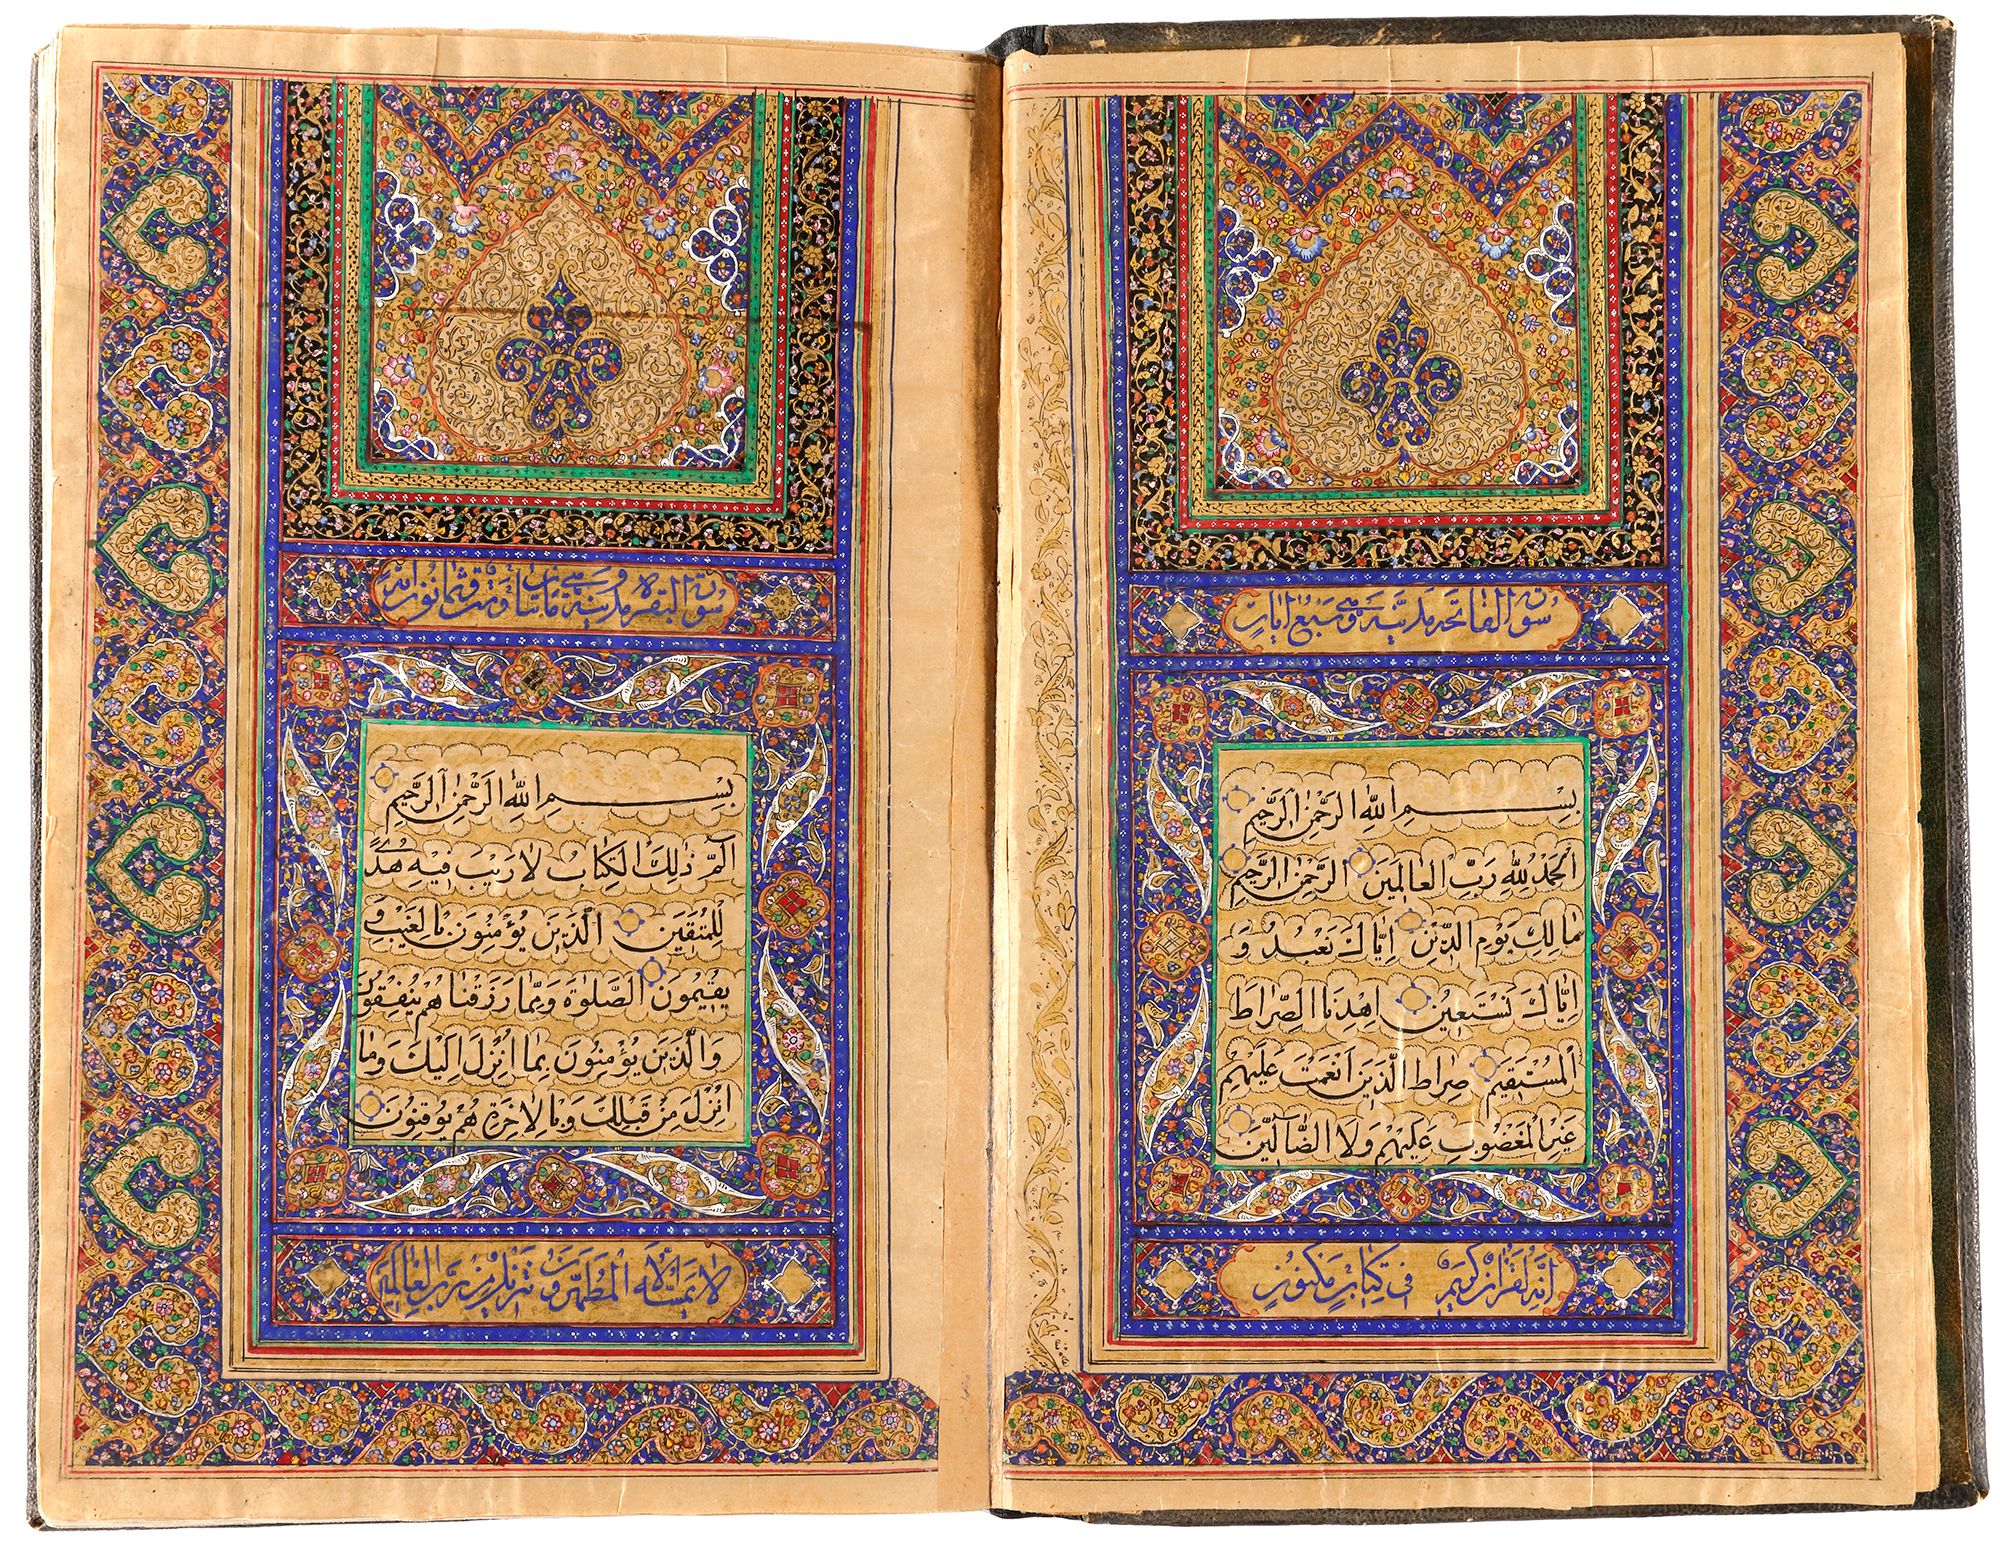 سورة الفاتحة مدنية وهى سبع ايات
بِسْمِ اللهِ الرَّحْمٰنِ الرَّحِيمِ
اَلْحَمْدُ لِلّٰهِ رَبِّ الْعٰالَمِينَ الرَّحْمٰنِ الرَّحِيمِ
مٰالِكِ يَوْمِ الدِّينِ اِيّٰاكَ نَعْبُدُ وَ
اِيّٰاكَ نَسْتَعِينُ اِهْدِنَا الصِّرٰاطَ
الْمُسْتَقِيمَ صِرٰاطَ الَّذِينَ اَنْعَمْتَ عَلَيْهِمْ
غَيْرِ الْمَغْضُوبِ عَلَيْهِمْ وَلَا الضّٰٓالِّينَ
اِنَّهُ لَقُرْاٰنٌ كَرِيمٌ فى كِتابٍ مَكْنُونٍ
سورة البقره مدنية وهى مائتان وست وثمانون اية
بِسْمِ اللهِ الرَّحْمٰنِ الرَّحِيمِ
الٓمّٓ ذٰلِكَ الْكِتٰابُ لٰا رَيْبَ فِيهِ هُدىً
لِلْمُتَّقِينَ اَلَّذِينَ يُؤْمِنُونَ بِالْغَيْبِ وَ
يُقِيمُونَ الصَّلوٰةَ وَمِمّٰا رَزَقْنٰاهُمْ يُنْفِقُونَ
وَالَّذِينَ يُؤْمِنُونَ بِمٰا اُنْزِلَ اِلَيْكَ وَمٰا
اُنْزِلَ مِنْ قَبْلِكَ وَبِالْاٰخِرَةِ هُمْ يُوقِنُونَ
لا يَمَسُّهُ اِلَّا الْمُطَهَّرُونَ تَنْزِيلٌ مِنْ رَبِّ الْعٰالَمِينَ